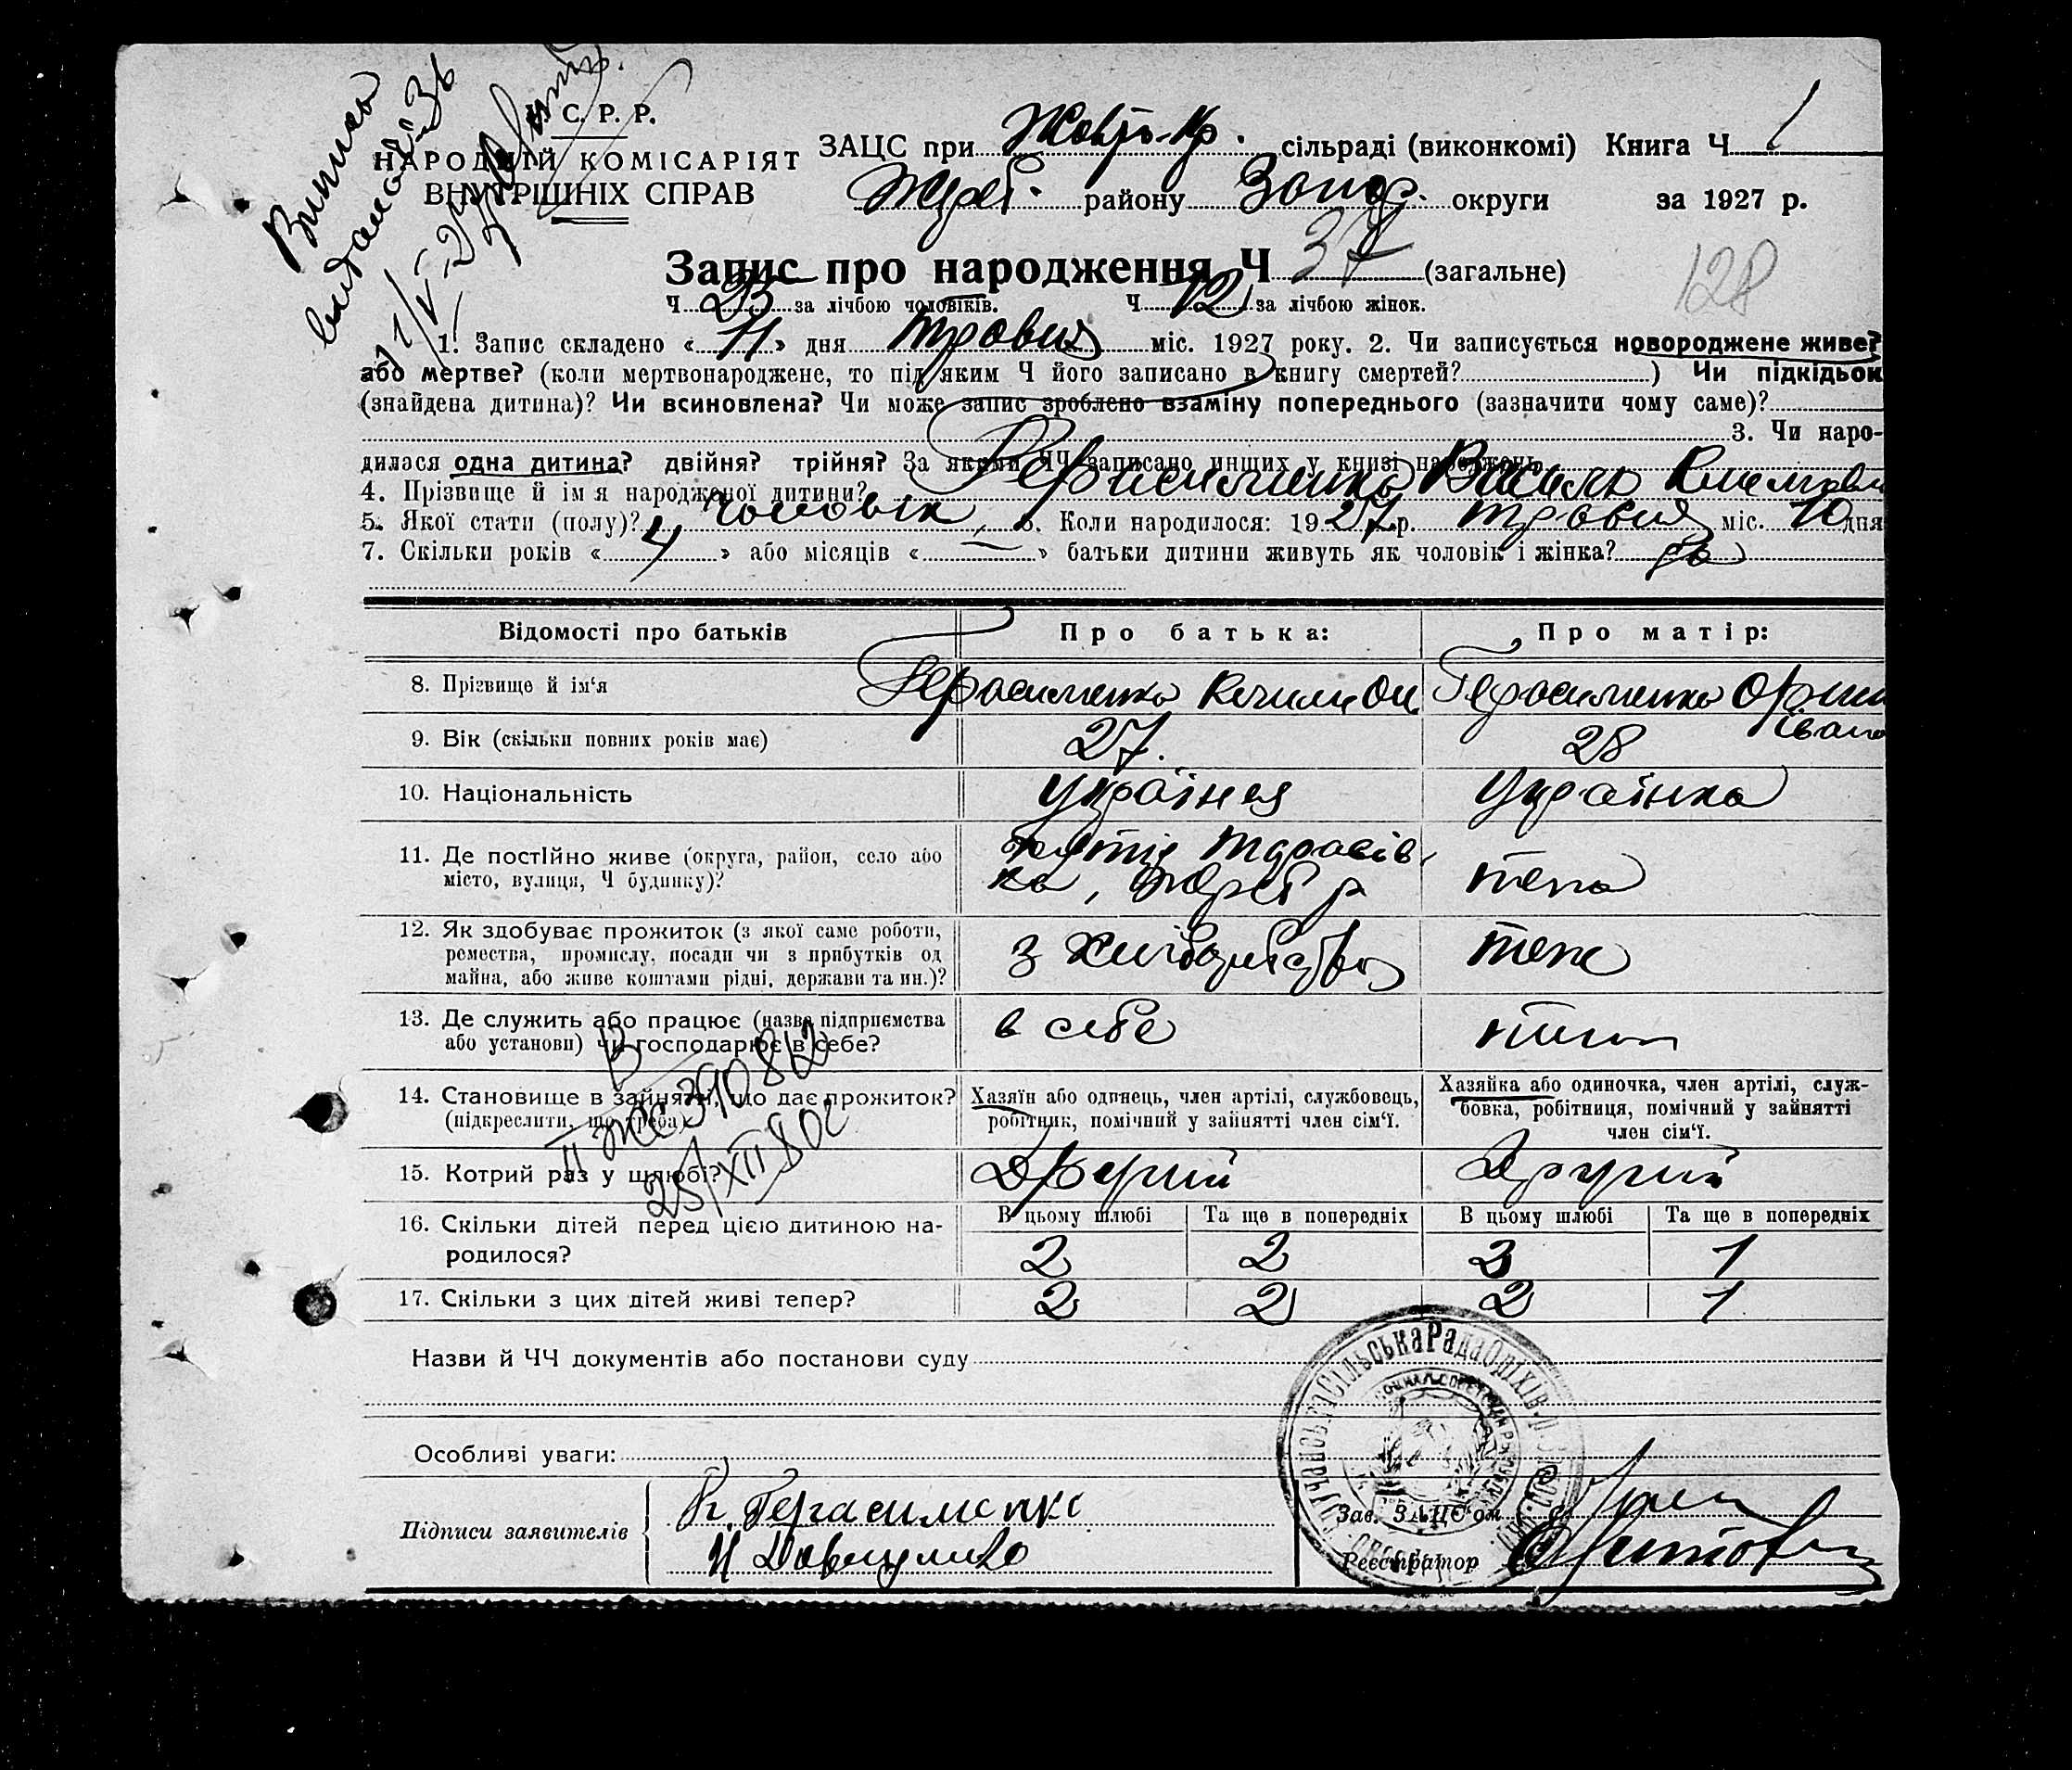 Виписъ
видано
С. Р. Р.
НАРОДНІЙ КОМІСАРІЯТ
ВНУТРІШНІХ СПРАВ
ЗАЦС при Жовт-Кр. сільраді (виконкомі) Книга Ч 1
Жереб. району Запор. округи за 1927 р.
Запис про народження Ч 37 (загальне)
128
Ч 25 за лічбою чоловіків. Ч 12 за лічбою жінок.
1. Запис складено «11» дня травня міс. 1927 року. 2. Чи записується новороджене живе?
або мертве? (коли мертвонароджене, то під яким Ч його записано в книгу смертей?) Чи підкідьок
(знайдена дитина)? Чи всиновлена? Чи може запис зроблено взаміну попереднього (зазначити чому саме)?
3. Чи наро-
дилася одна дитина? двійня? трійня? За якими ЧЧ записано инших у книзі народжень
4. Прізвище й ім'я народженої дитини? Герасименко Василь
5. Якої стати (полу)? чоловік 6. Коли народилося: 1927 р. травня міс. 10 дня
7. Скільки років «4» або місяців «—» батьки дитини живуть як чоловік і жінка? да
Відомості про батьків Про батька: Про матір:
8. Прізвище й ім'я Герасименко Герасименко Орин
Івано
9. Вік (скільки повних років має) 27. 28
10. Національність українец Українка
11. Де постійно живе (округа, район, село або
місто, вулиця, Ч будинку)?
Тарасів
ка, Жереб р
тепа
12. Як здобуває прожиток (з якої саме роботи,
ремества, промислу, посади чи з прибутків од
майна, або живе коштами рідні, держави та ин.)?
з Хліборобства
теж
13. Де служить або працює (назва підприємства
або установи) чи господарює в себе?
в себе
В
II ЖС 390812
25/XII 80г
14. Становище в зайнятті, що дає прожиток?
(підкреслити, що треба)
Хазяїн або одинець, член артілі, службовець,
робітник, помічний у зайнятті член сім'ї.
Хазяйка або одиночка, член артілі, служ-
бовка, робітниця, помічний у зайнятті
член сім'ї.
15. Котрий раз у шлюбі? Другий Другий
16. Скільки дітей перед цією дитиною на-
родилося?
В цьому шлюбі Та ще в попередніх В цьому шлюбі Та ще в попередніх
2 2 3 1
17. Скільки з цих дітей живі тепер? 2 2 2 1
Назви й ЧЧ документів або постанови суду
Особливі уваги:
Сільська Рада Оріхів. р.
Підписи заявителів К. Герасименко
Зав. ЗАЦС'ом
Реєстратор